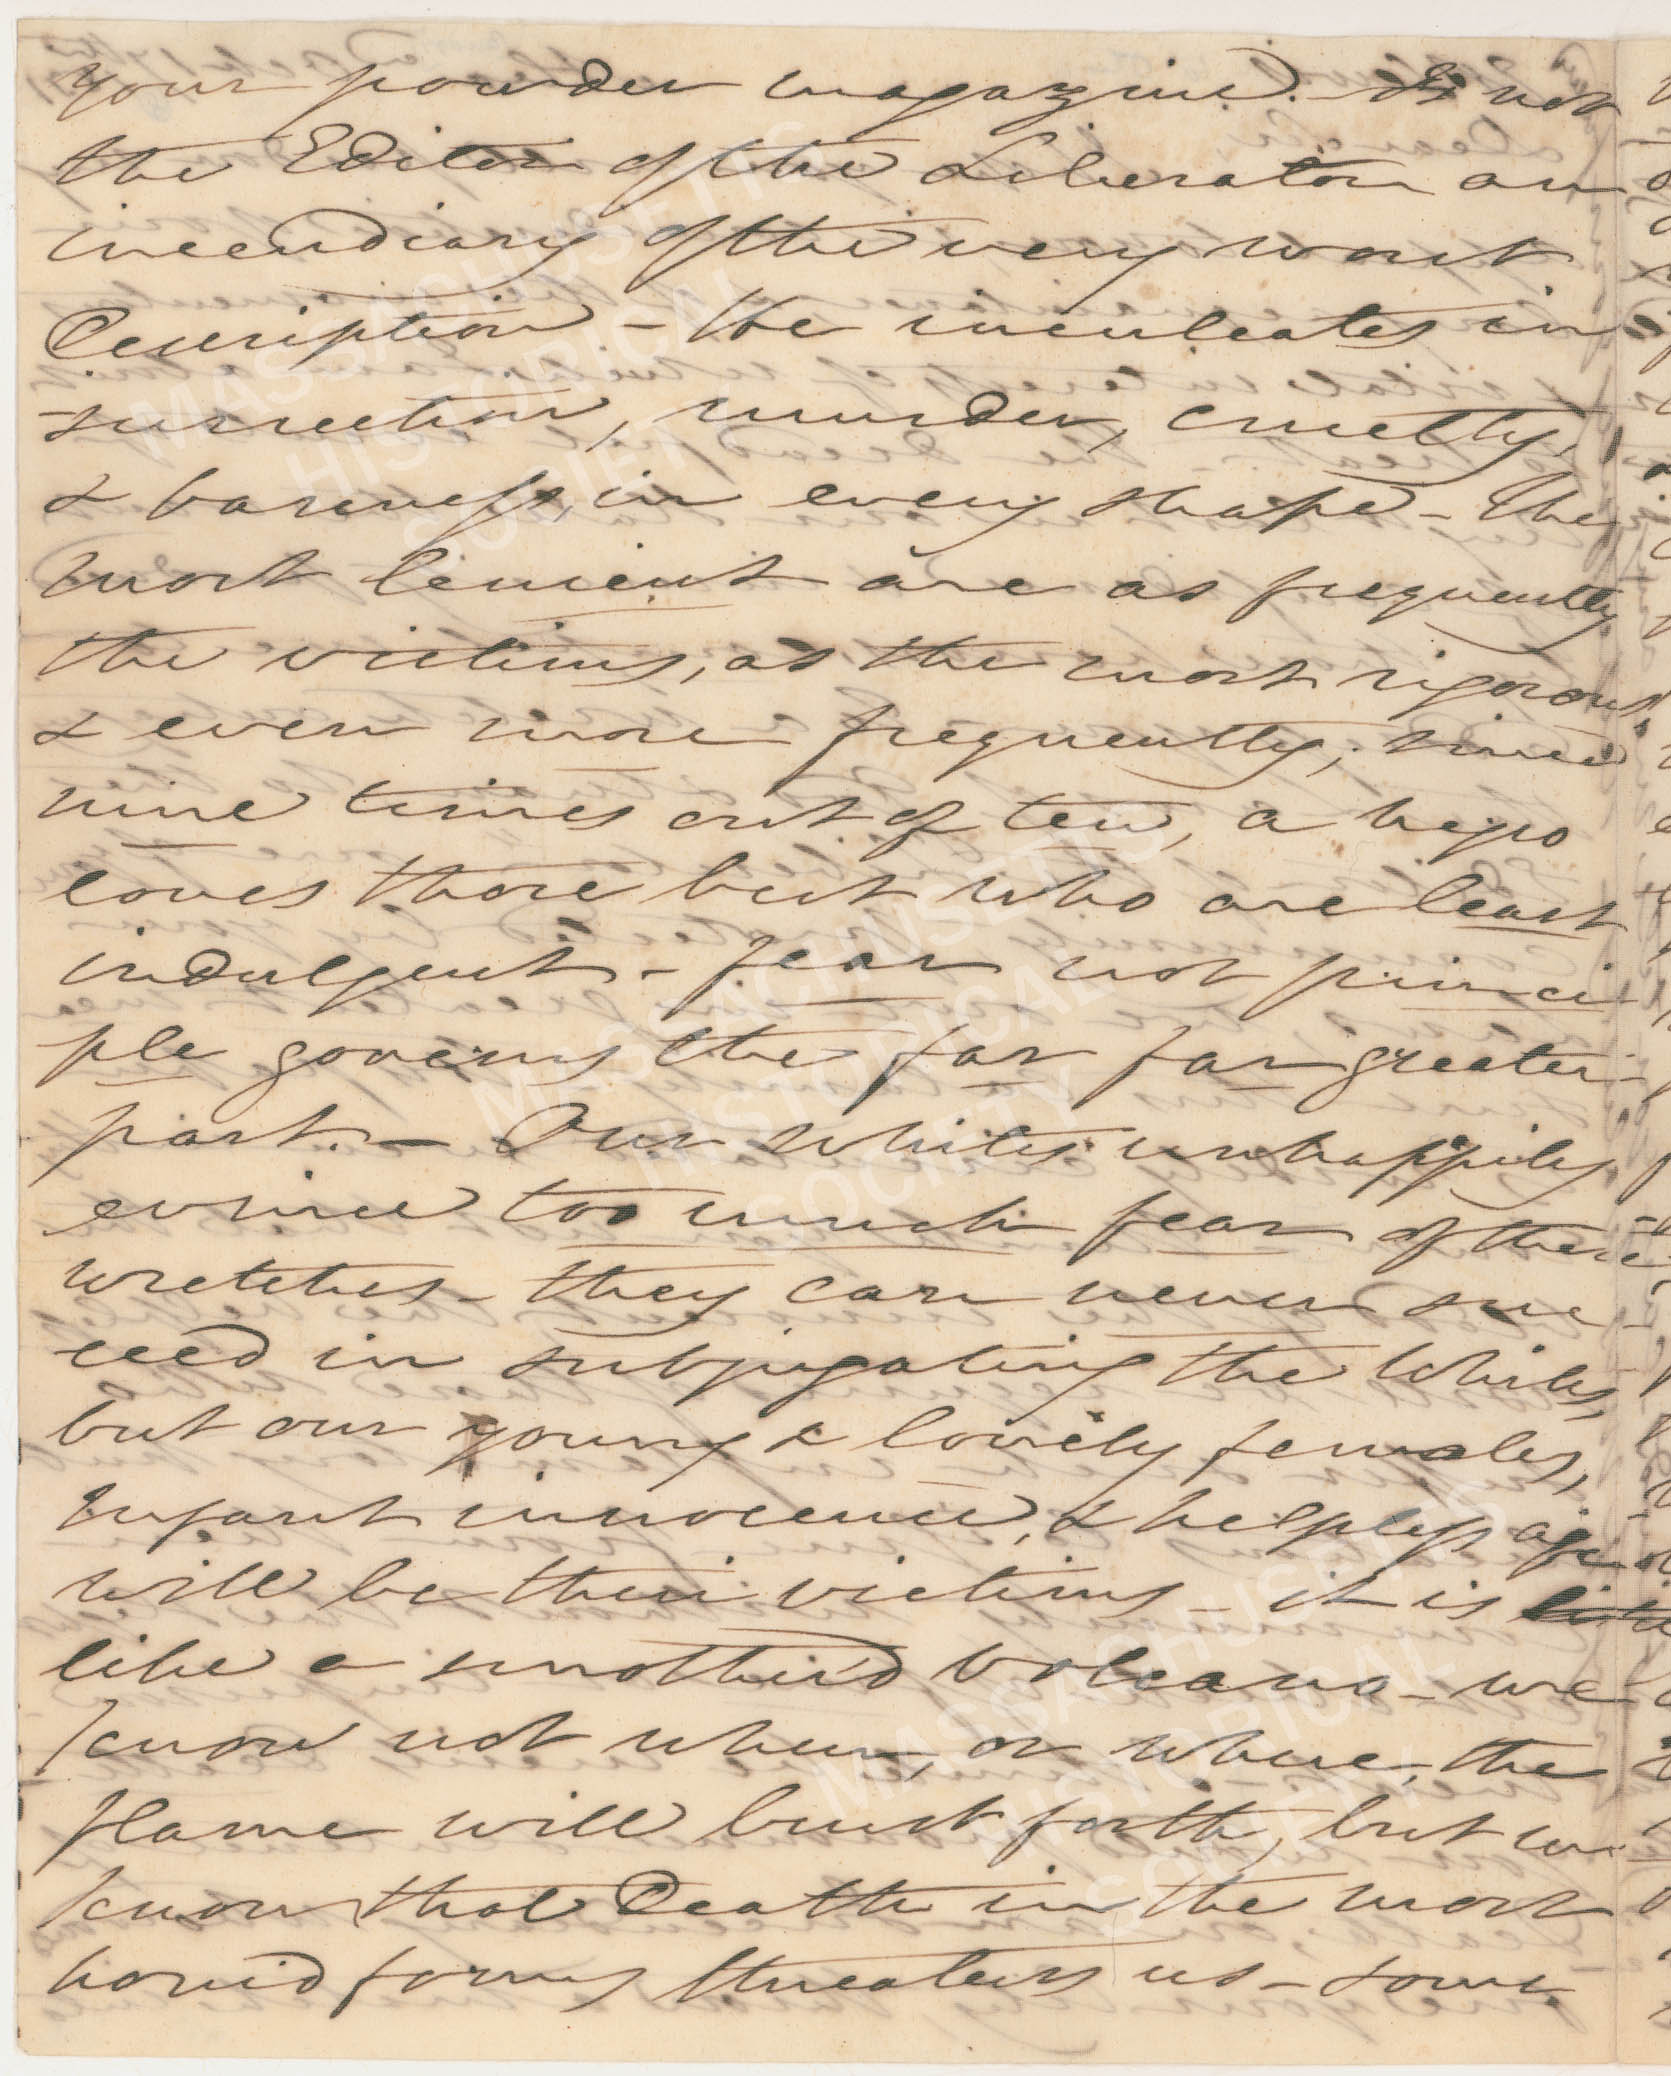 your powder magazine. Is not
the Editor of the Liberator an
incendiary of the very worst
Description - He inculcates in
-surrection, murder, cruelty,
& baseness, in every shape - the
most lenient are as frequently
the victims, as the most rigorous,
& even more frequently, since
nine times out of ten, a negro
loves those best who are least
indulgent - fear not princi
ple governs the far far greater
part. - Our whites unhappily
evince too much fear of these
wretches - they can never suc-
ceed in subjugating the Whites,
but our young & lovely females,
infant innocence, & helpless age
will be their victims - it is
like a smother'd volcano - we
know not when, or where, the
flame will burst forth, but we
know that Death in the most
horrid forms threatens us - some
MASSACHUSETTS
HISTORICAL
SOCIETY
MASSACHUSETTS
HISTORICAL
SOCIETY
MASSACHUSETTS
HISTORICAL
SOCIETY